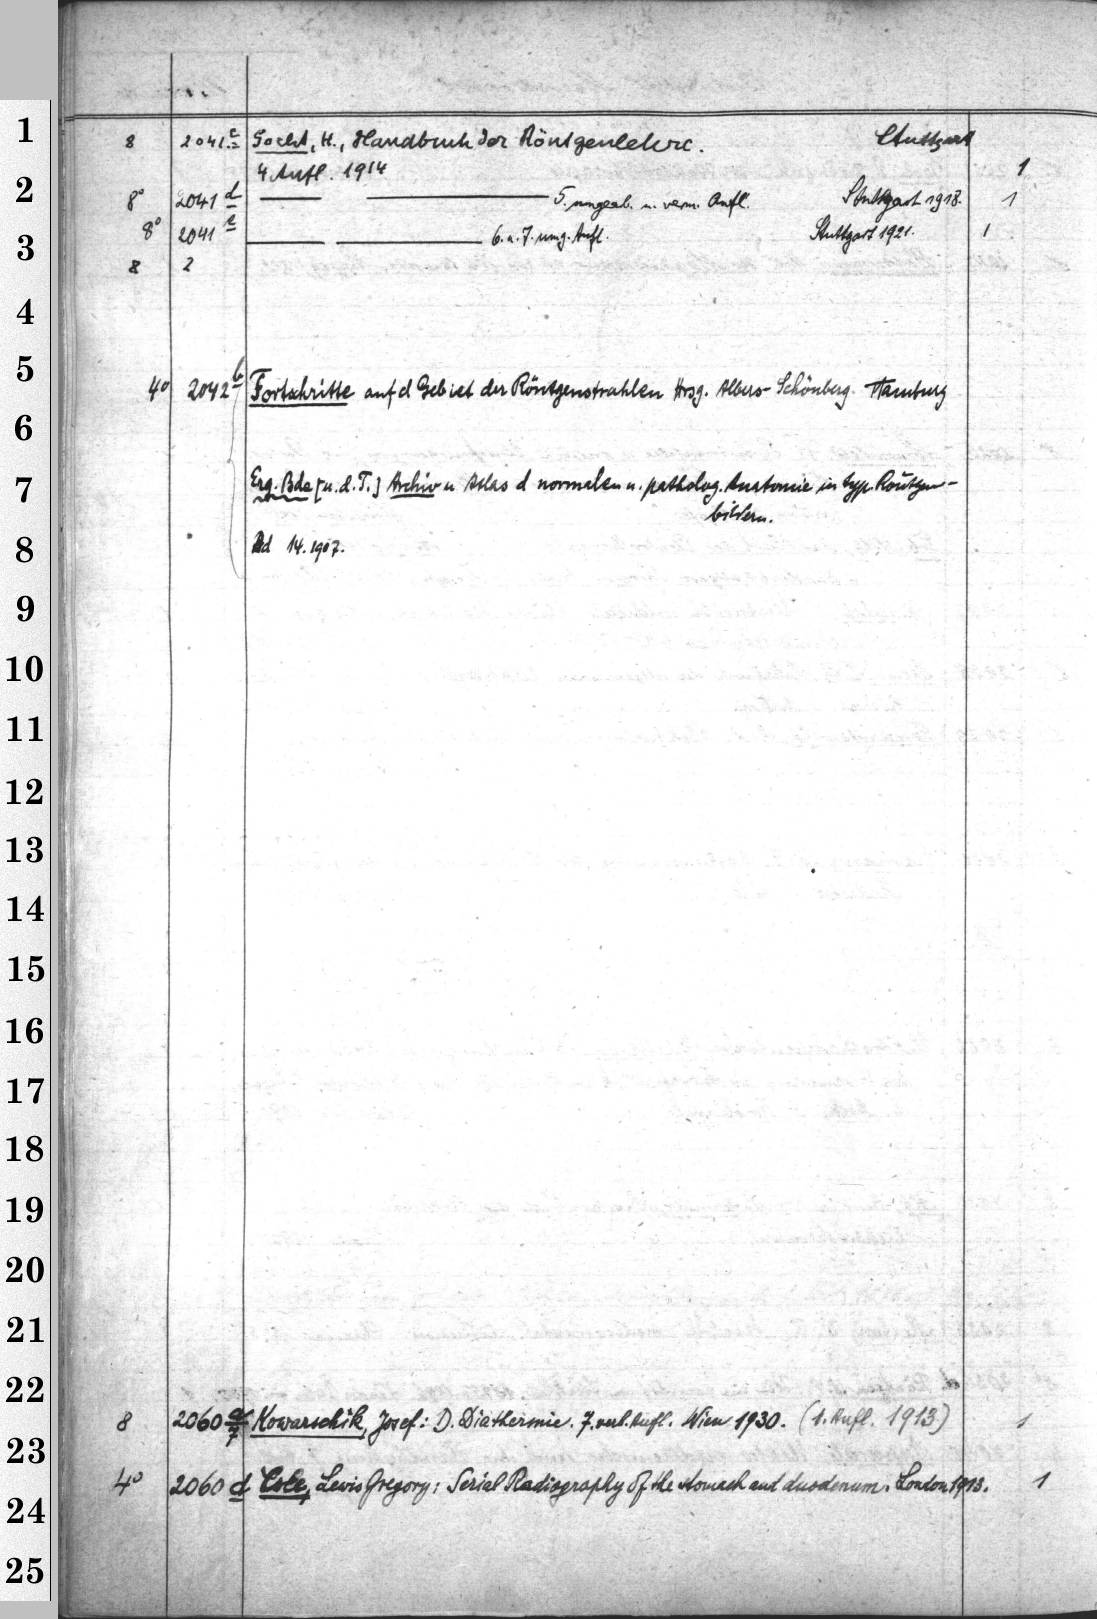 1
8 2041 c Gocht, H., Handbuch der Röntgenlehre. Stuttgart
4 Aufl. 1914 1
2
8° 2041 d — — 5. umgearb. u. verm. Aufl. Stuttgart 1918. 1
8° 2041 e — — 6. u. 7. umg. Aufl. Stuttgart 1921. 1
3
8 2
4
5
4° 2042 b Fortschritte auf d Gebiet der Röntgenstrahlen Hrsg. Albers-Schönberg. Hamburg
6
7
Erg. Bde [u. d. T.] Archiv u Atlas d normalen u. patholog. Anatomie in typ. Röntgen-
bildern.
8
Bd 14. 1907.
9
10
11
12
13
14
15
16
17
18
19
20
21
22
8 2060 a/7 Kowarschik, Josef: D. Diathermie. 7. verb. Aufl. Wien 1930. (1. Aufl. 1913) 1
23
4° 2060 d Cole, Lewis Gregory: Serial Radiography of the stomach and duodenum. London 1913. 1
24
25